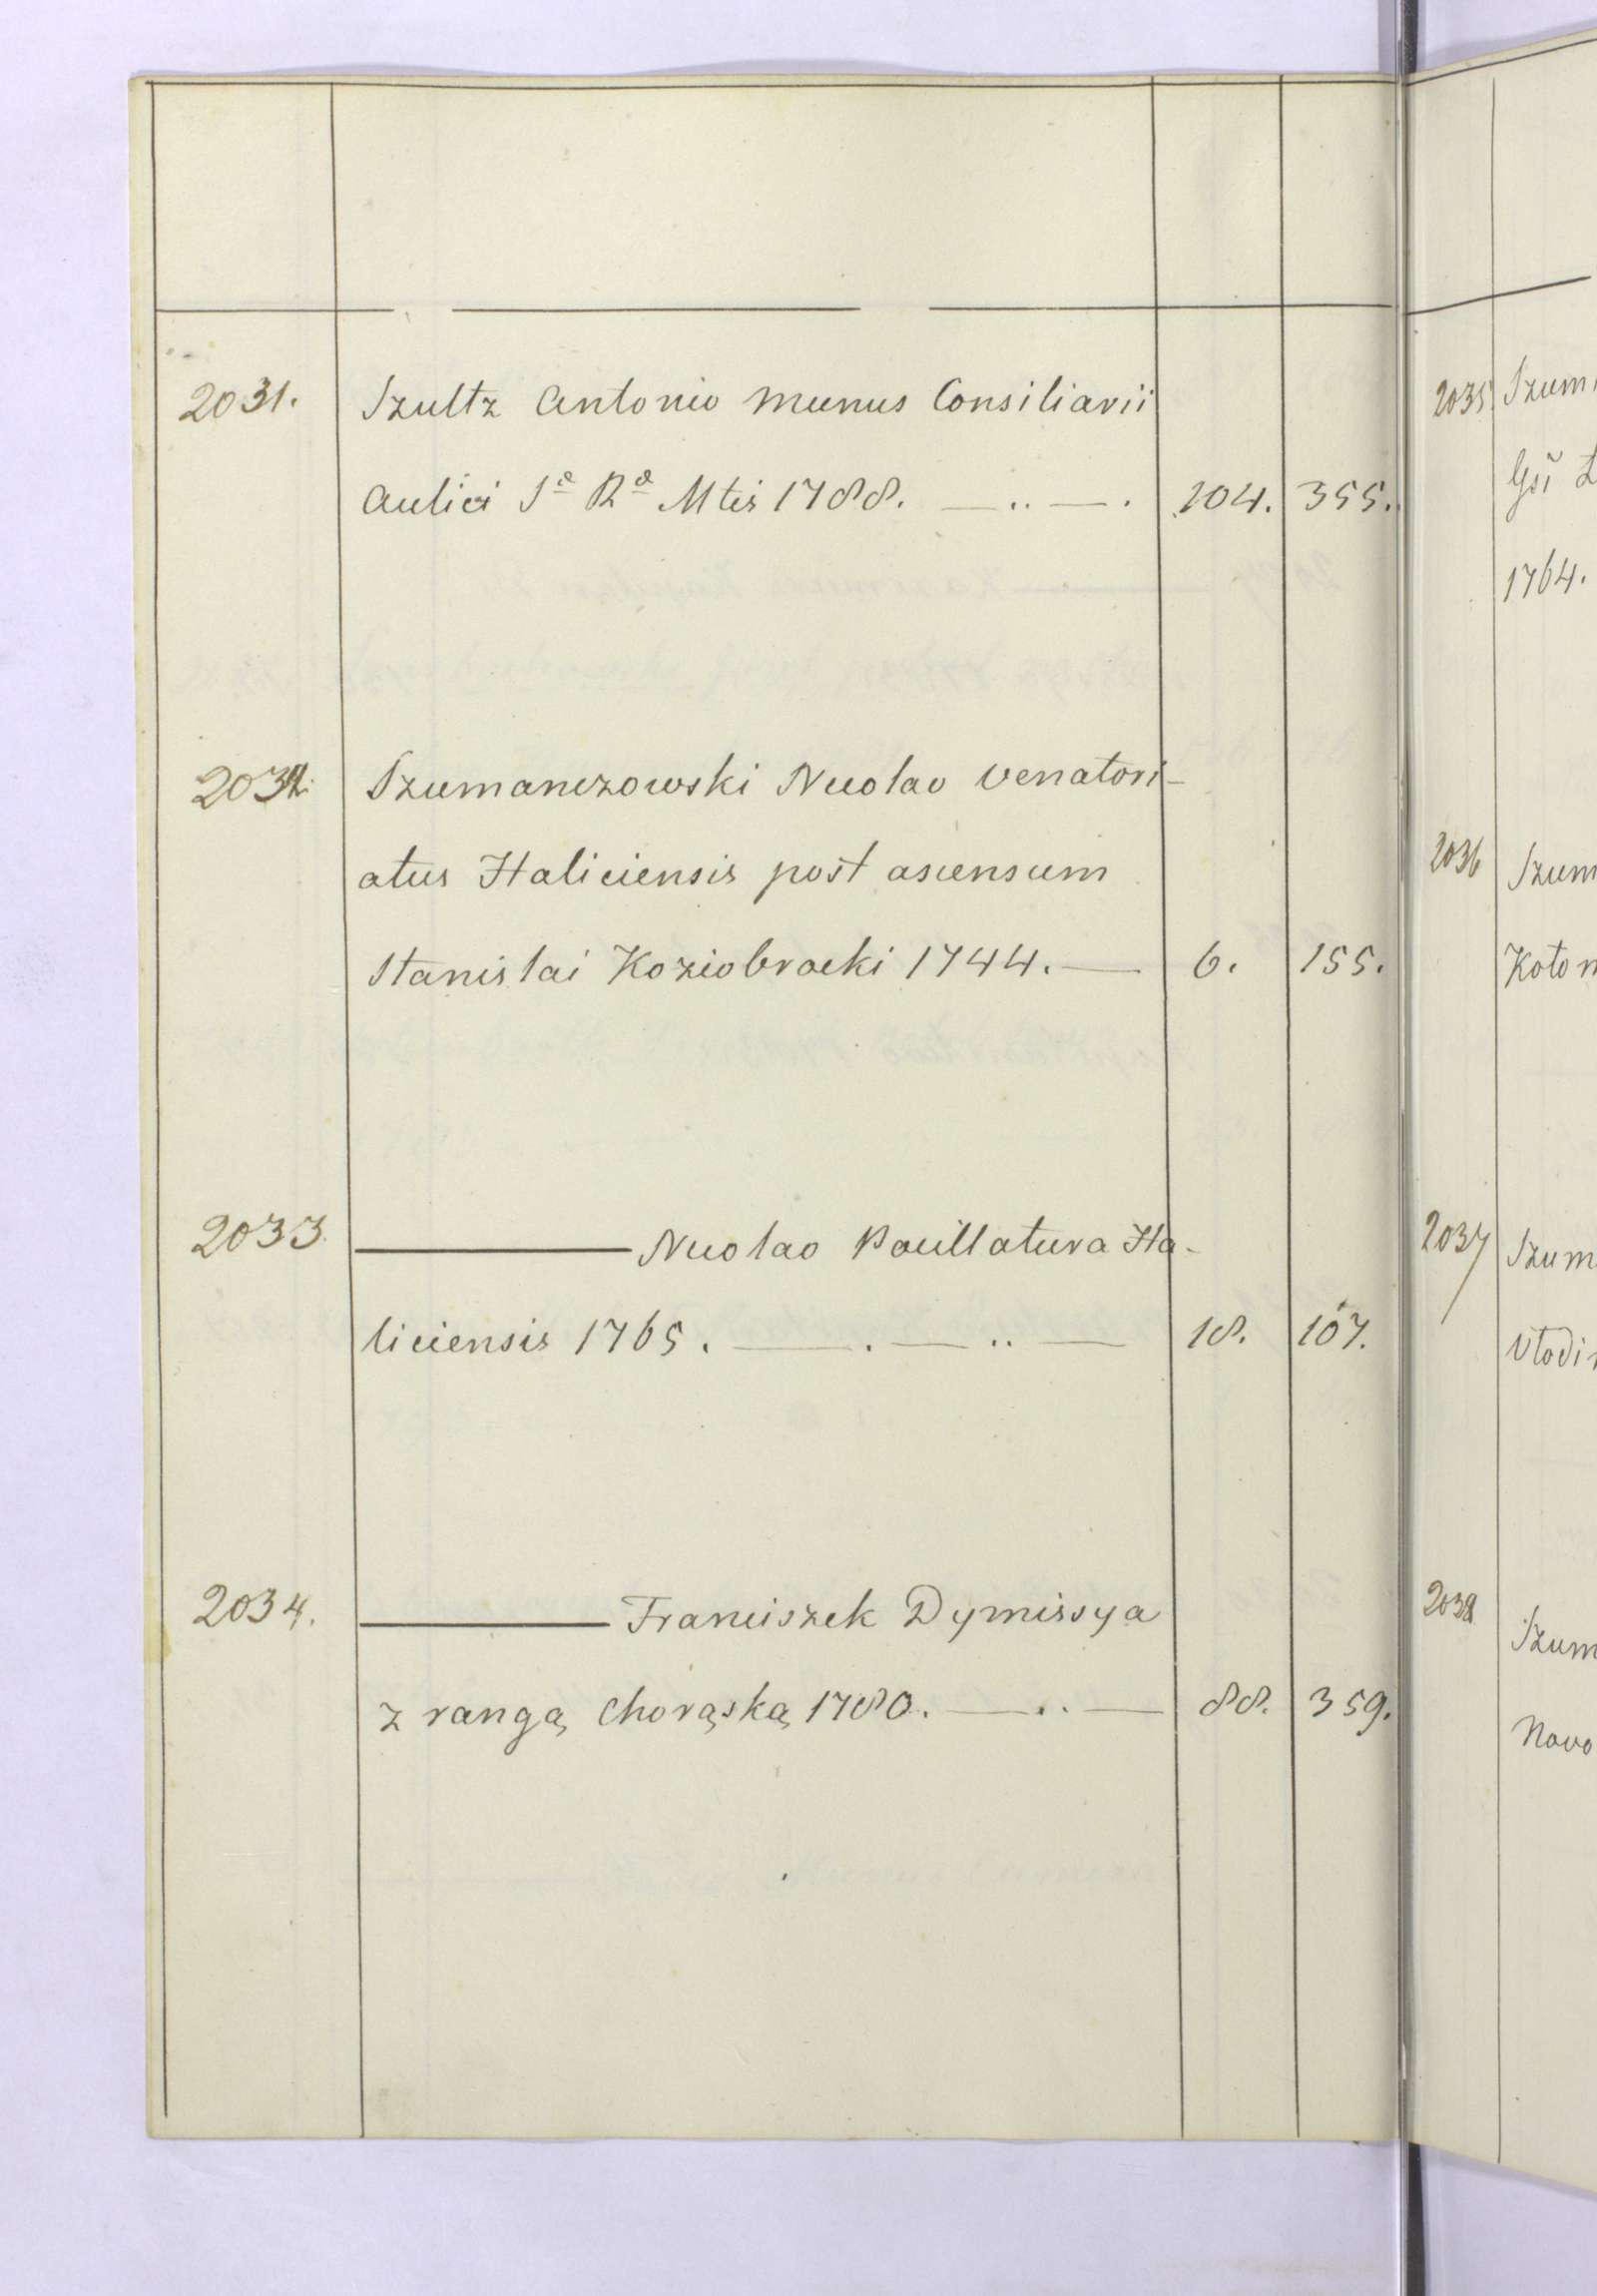 2031. Szultz Antonio munus Consiliarii
Aulici Sᵃ Rᵃ Mtis 1788. — .. — . 104. 355.
2032. Szumanczowski Nicolao Venatori-
atus Haliciensis post ascensum
Stanislai Koziobrocki 1744. — 6. 155.
2033. ——— Nicolao Pocillatura Ha-
liciensis 1765. — . — .. — 18. 107.
2034. ——— Franciszek Dymissya
z rangą chorąską 1780. — .. — 88. 359.
2035 Szum
Gsi
1764.
2036 Szum
Kotom
2037 Szum
Vlodi
2038 Szum
Novo